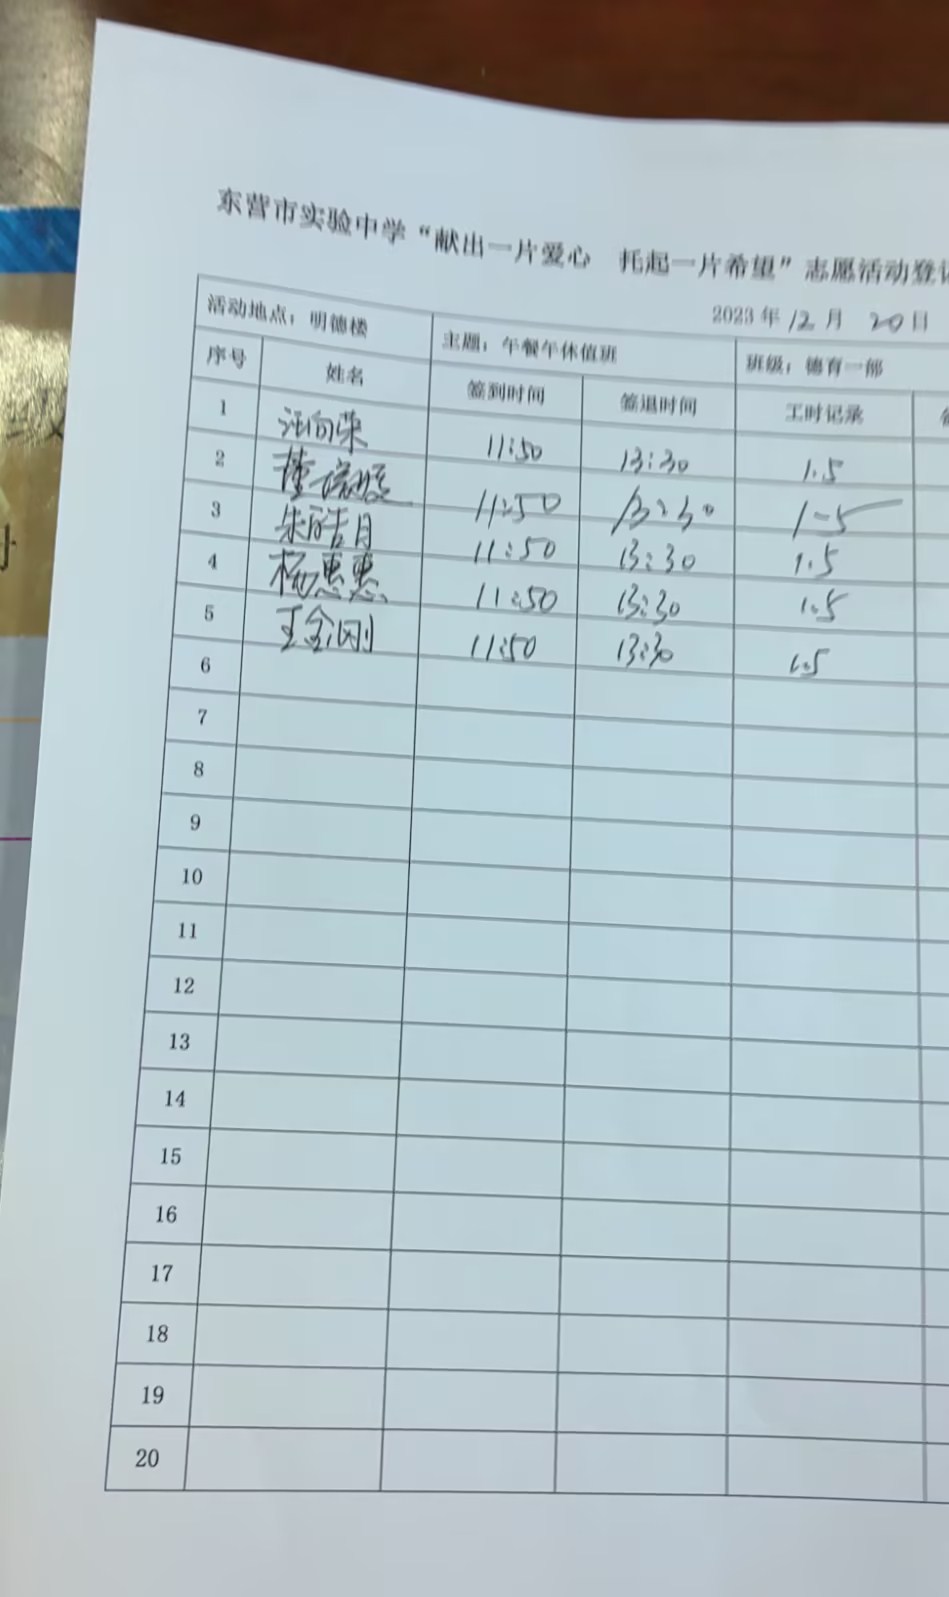 东营市实验中学“献出一片爱心 托起一片希望”志愿活动登
2023年12月20日
活动地点：明德楼 主题：午餐午休值班 班级：德育一部
序号 姓名 签到时间 签退时间 工时记录
1 汪向荣 11:50 13:30 1.5
2 11:50 13:30 1.5
3 朱皓月 11:50 13:30 1.5
4 杨惠惠 11:50 13:30 1.5
5 王金刚 11:50 13:30 1.5
6
7
8
9
10
11
12
13
14
15
16
17
18
19
20